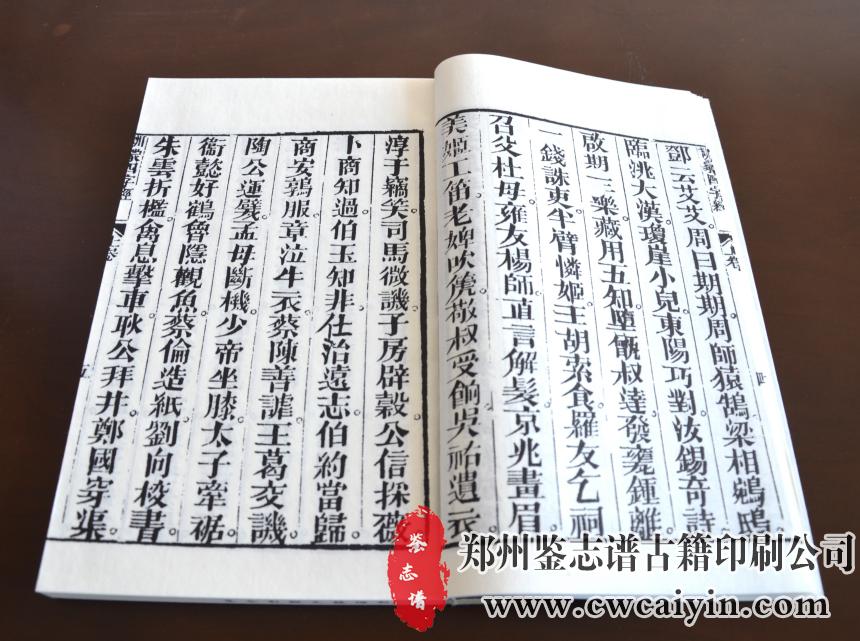 訓蒙四字經 上卷 四
鄧云艾艾。周曰期期。周師猿鵠。梁相鵷鴟。
臨洮大漢。瓊崖小兒。東陽巧對。汝錫奇詩。
啟期三樂。藏用五知。墮甑叔達。發甕鍾離。
一錢誅吏。半臂憐姬。王胡索食。羅友乞祠。
召父杜母。雍友楊師。直言解髮。京兆畫眉。
美姬工笛。老婢吹篪。敬叔受餉。吳祐遺衣。
淳于竊笑。司馬微譏。子房辟穀。公信採薇。
卜商知過。伯玉知非。仕治遠志。伯約當歸。
商安鶉服。章泣牛衣。蔡陳善謔。王葛交譏。
陶公運甓。孟母斷機。少帝坐膝。太子牽裾。
衞懿好鶴。魯隱觀魚。蔡倫造紙。劉向校書。
朱雲折檻。禽息擊車。耿公拜井。鄭國穿渠。
訓蒙四字經 上卷 五
鉴志谱
郑州鉴志谱古籍印刷公司
www.cwcaiyin.com